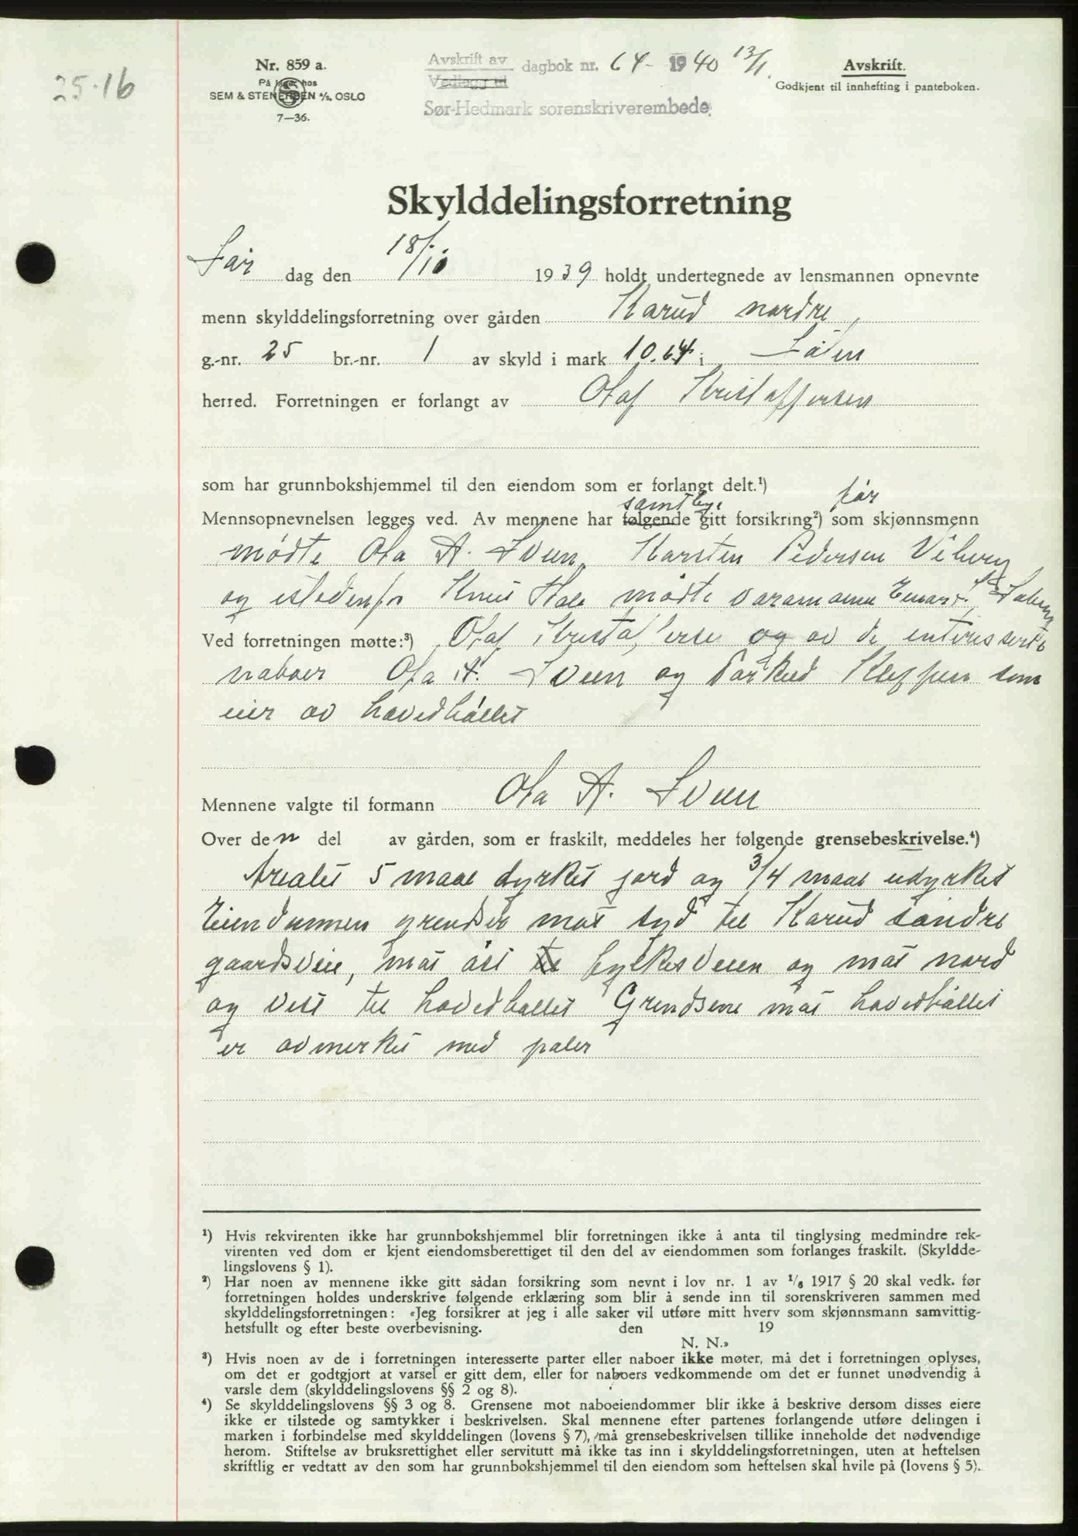 25.16
Nr. 859 a.
På lager hos
SEM & STENERSEN A/S, OSLO
7—36.
Avskrift av dagbok nr. 64 - 1940 13/1.
Vedlegg til
Sør-Hedmark sorenskriverembede
Avskrift.
Godkjent til innhefting i panteboken.
Skylddelingsforretning
År dag den 18/10 1939 holdt undertegnede av lensmannen opnevnte
menn skylddelingsforretning over gården Karud nordre,
g.-nr. 25 br.-nr. 1 av skyld i mark 10.64 i Løten
herred. Forretningen er forlangt av Olaf Kristoffersen
som har grunnbokshjemmel til den eiendom som er forlangt delt.¹)
Mennsopnevnelsen legges ved. Av mennene har følgende samtlige gitt forsikring²) som skjønnsmenn før
mødte Ola A. Sveen, Karsten Pedersen Viberg
og istedenfor Knut Hole møtte varamann Einar
Ved forretningen møtte:³) Olaf Kristoffersen og av de interesserte
naboer Ola A. Sveen og Kleppen som
eier av hovedbøllet
Mennene valgte til formann Ola A. Sveen
Over den del av gården, som er fraskilt, meddeles her følgende grensebeskrivelse.⁴)
Arealet 5 maal dyrket jord og 3/4 maal udyrket
Eiendommen grendser mot syd til Karud søndre
gaardsveie, mot øst te fylkesveien og mot nord
og vest til hovedbøllet Grendsene mot hovedbøllet
er avmerket med pæler
¹) Hvis rekvirenten ikke har grunnbokshjemmel blir forretningen ikke å anta til tinglysing medmindre rek-
virenten ved dom er kjent eiendomsberettiget til den del av eiendommen som forlanges fraskilt. (Skyldde-
lingslovens § 1).
²) Har noen av mennene ikke gitt sådan forsikring som nevnt i lov nr. 1 av 1/6 1917 § 20 skal vedk. før
forretningen holdes underskrive følgende erklæring som blir å sende inn til sorenskriveren sammen med
skylddelingsforretningen: «Jeg forsikrer at jeg i alle saker vil utføre mitt hverv som skjønnsmann samvittig-
hetsfullt og efter beste overbevisning. den 19
N. N.»
³) Hvis noen av de i forretningen interesserte parter eller naboer ikke møter, må det i forretningen oplyses,
om det er godtgjort at varsel er gitt dem, eller for naboers vedkommende om det er funnet unødvendig å
varsle dem (skylddelingslovens §§ 2 og 8).
⁴) Se skylddelingslovens §§ 3 og 8. Grensene mot naboeiendommer blir ikke å beskrive dersom disses eiere
ikke er tilstede og samtykker i beskrivelsen. Skal mennene efter partenes forlangende utføre delingen i
marken i forbindelse med skylddelingen (lovens § 7), må grensebeskrivelsen tillike inneholde det nødvendige
herom. Stiftelse av bruksrettighet eller servitutt må ikke tas inn i skylddelingsforretningen, uten at heftelsen
skriftlig er vedtatt av den som har grunnbokshjemmel til den eiendom som heftelsen skal hvile på (lovens § 5).